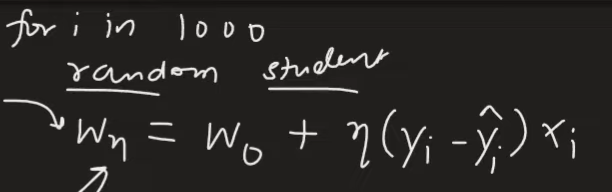 for i in 1000
random student
Wn = W0 + η(yi - ŷi) xi